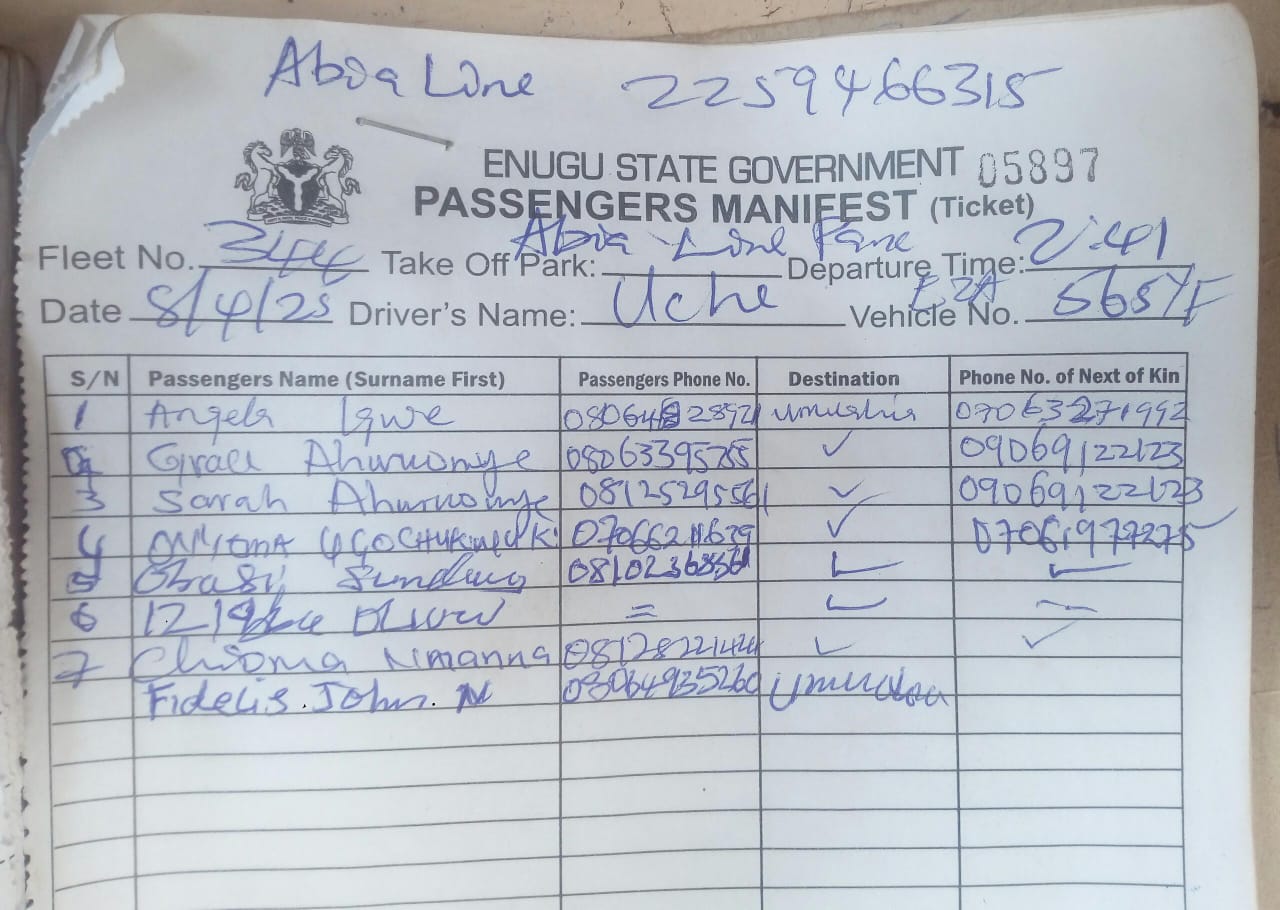 Abia Line 2259466315
ENUGU STATE GOVERNMENT 05897
PASSENGERS MANIFEST (Ticket)
Fleet No. 344 Take Off Park: Abia Line Departure Time: 2:41
Date 8/4/25 Driver's Name: Uche Vehicle No. 565YF
S/N Passengers Name (Surname First) Passengers Phone No. Destination Phone No. of Next of Kin
1 Angela Igwe Umuahia 07063271992
Grace Ahuruonye 08063395785 ✓ 09069122123
3 Sarah Ahuruonye 08125295561 ✓ 09069122123
4 ✓ 07061977275
5 Obasi Sunday ✓ ✓
6 = ✓
7 Chioma Nmanna 08128221424 ✓ ✓
Fidelis John. N 08064935260